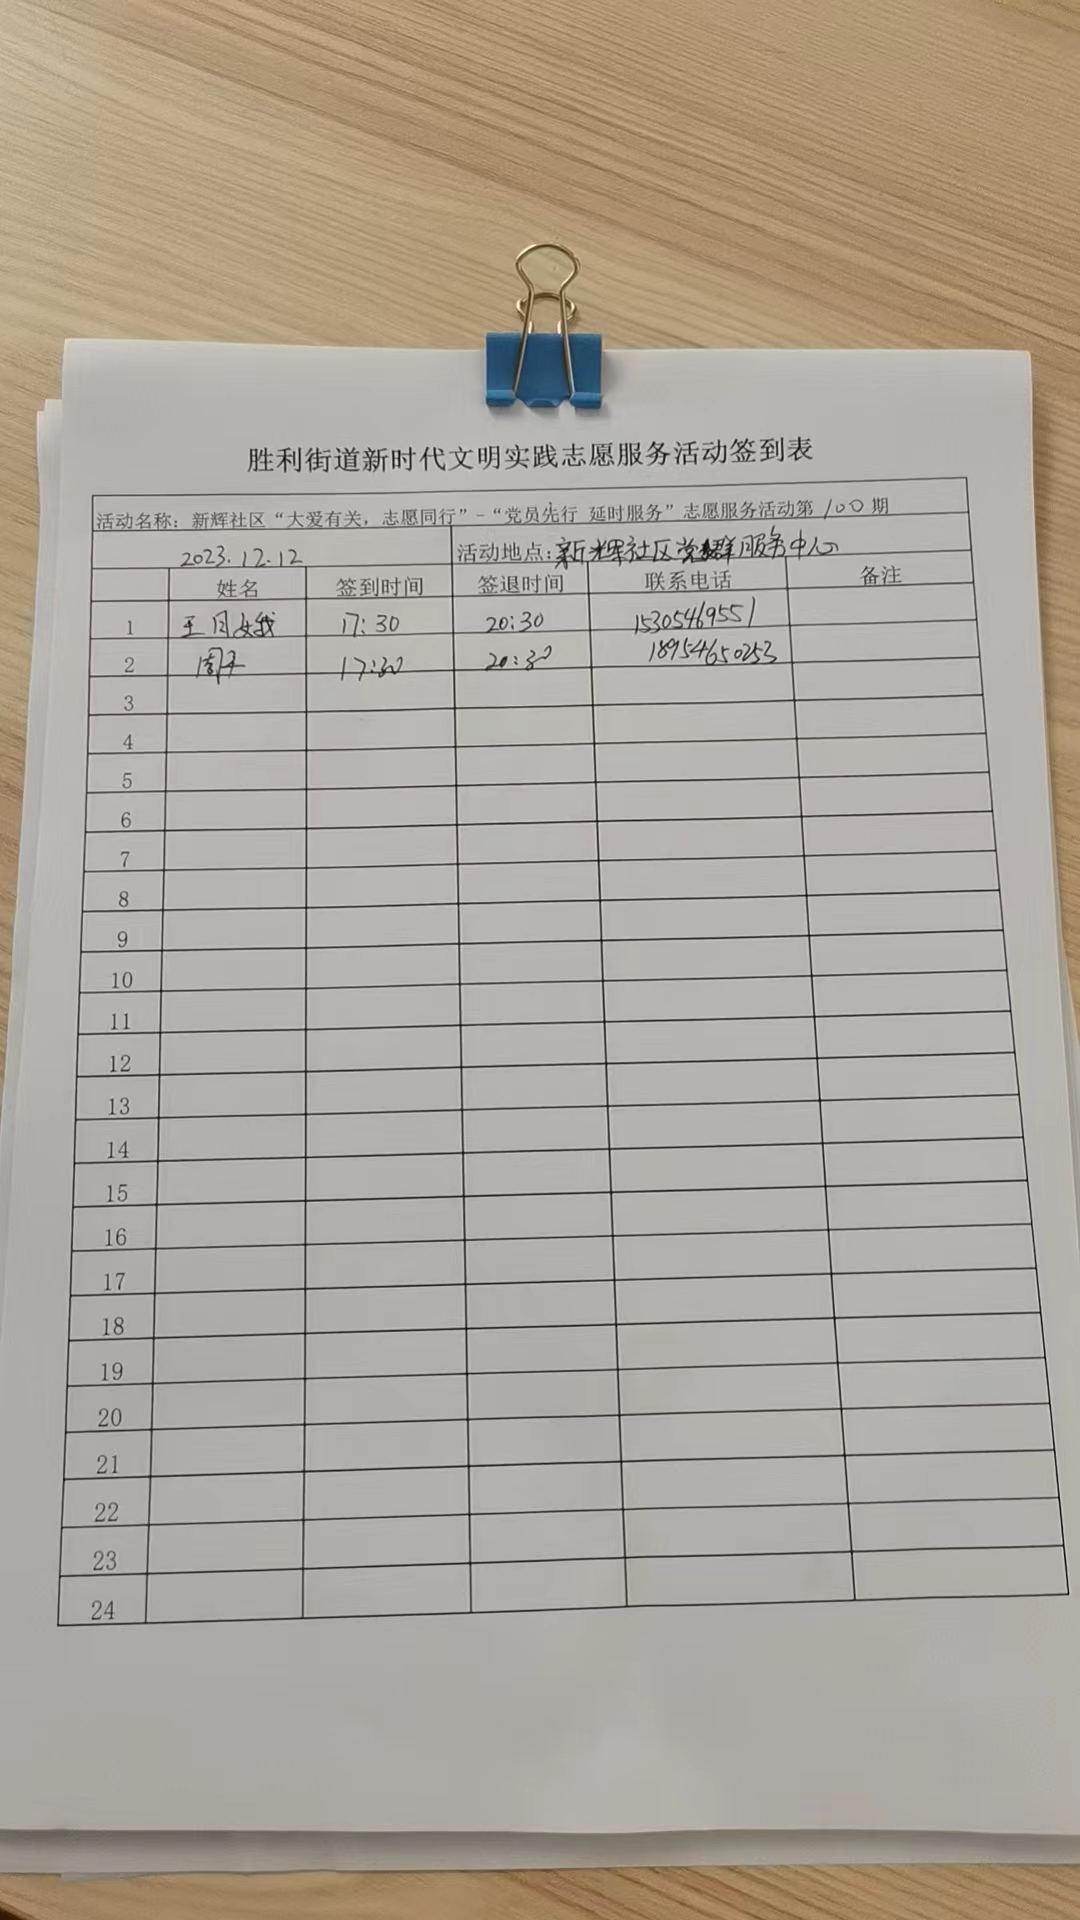 胜利街道新时代文明实践志愿服务活动签到表
活动名称：新辉社区“大爱有关，志愿同行”-“党员先行 延时服务”志愿服务活动第100期
2023.12.12 活动地点：新辉社区党群服务中心
姓名 签到时间 签退时间 联系电话 备注
1 王月娥 17:30 20:30 15305469551
2 周 17:30 20:30 18954650253
3
4
5
6
7
8
9
10
11
12
13
14
15
16
17
18
19
20
21
22
23
24